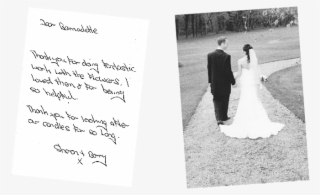 Dear Bernadette
Thankyou for doing fantastic
work with the flowers. I
loved them & for being
so helpful.
Thank you for looking after
our candles for so long.
Sharon & Barry
x